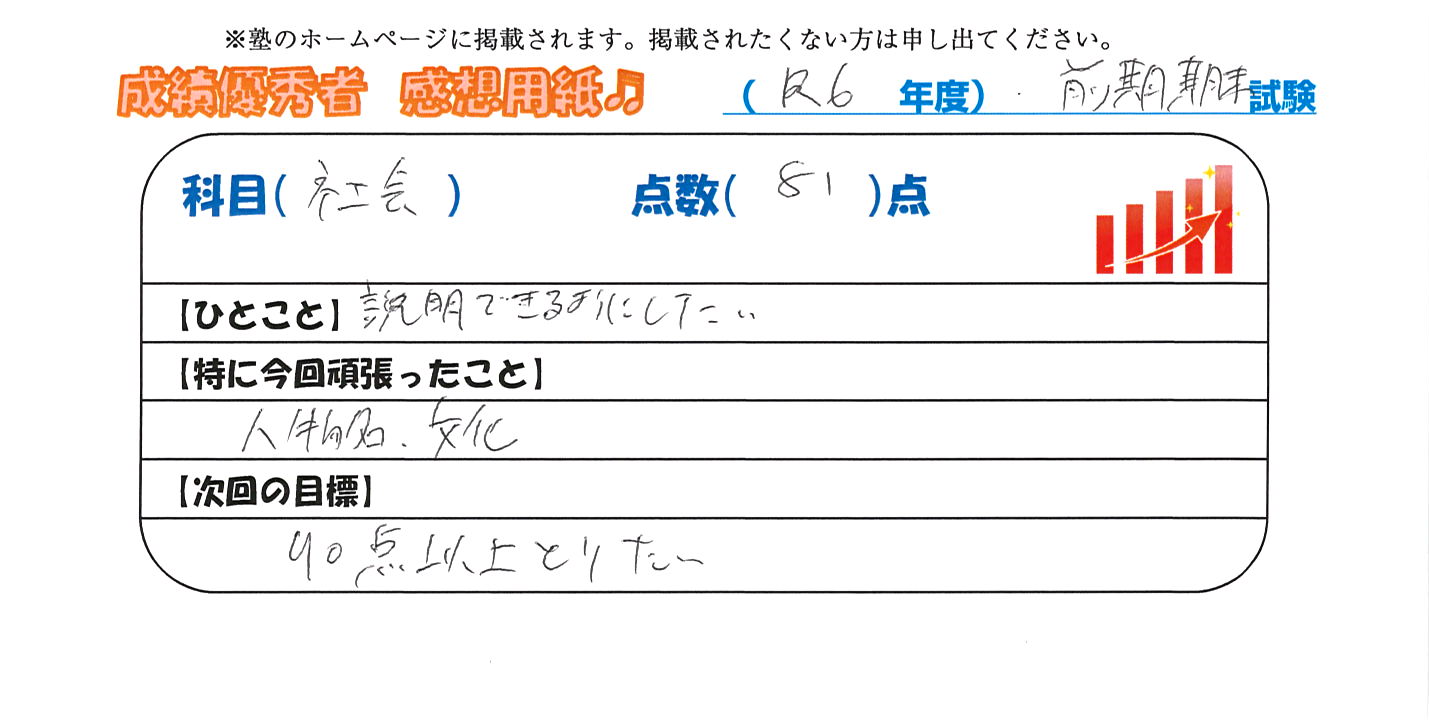 ※塾のホームページに掲載されます。掲載されたくない方は申し出てください。
成績優秀者 感想用紙♫ (R6 年度) 前期期末試験
科目(社会) 点数(81)点
【ひとこと】説明できるようにしたい
【特に今回頑張ったこと】
人物名、文化
【次回の目標】
90点以上とりたい